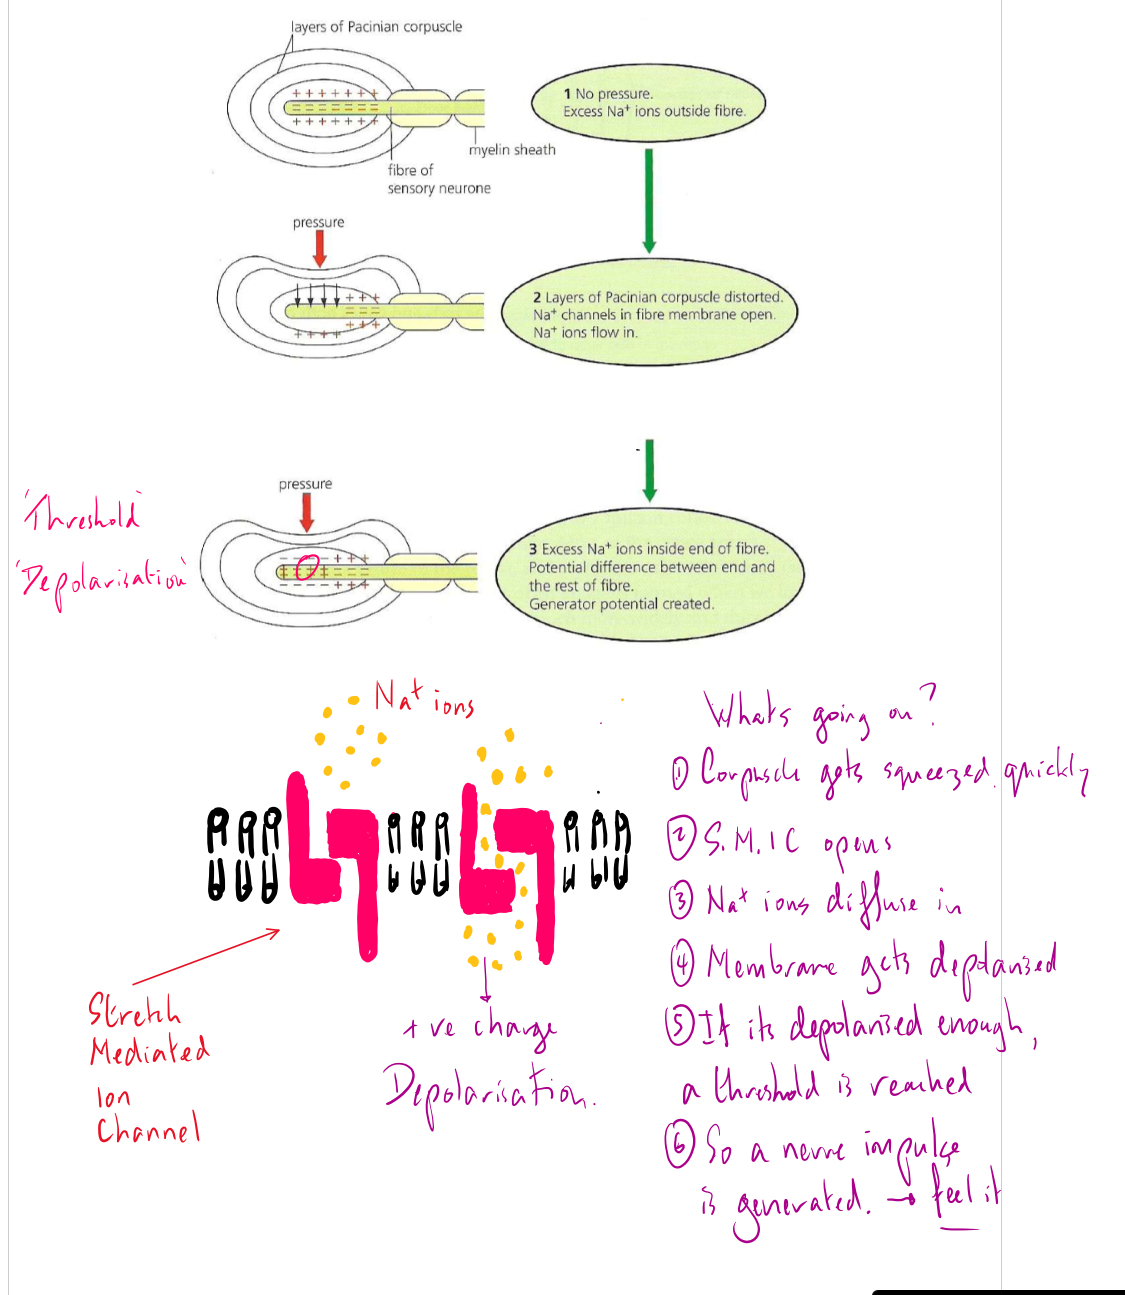 layers of Pacinian corpuscle
+ + + + + + +
= = = = = = =
+ + + + + + +
1 No pressure.
Excess Na⁺ ions outside fibre.
myelin sheath
fibre of
sensory neurone
pressure
+ + +
= = =
+ + + + + + +
2 Layers of Pacinian corpuscle distorted.
Na⁺ channels in fibre membrane open.
Na⁺ ions flow in.
'Threshold'
'Depolarisation'
pressure
3 Excess Na⁺ ions inside end of fibre.
Potential difference between end and
the rest of fibre.
Generator potential created.
Na⁺ ions
Stretch
Mediated
Ion
Channel
+ve charge
Depolarisation.
Whats going on?
① Corpuscle gets squeezed quickly
② S.M.I C opens
③ Na⁺ ions diffuse in
④ Membrane gets depolarised
⑤ If its depolarised enough,
a threshold is reached
⑥ So a nerve impulse
is generated. → feel it